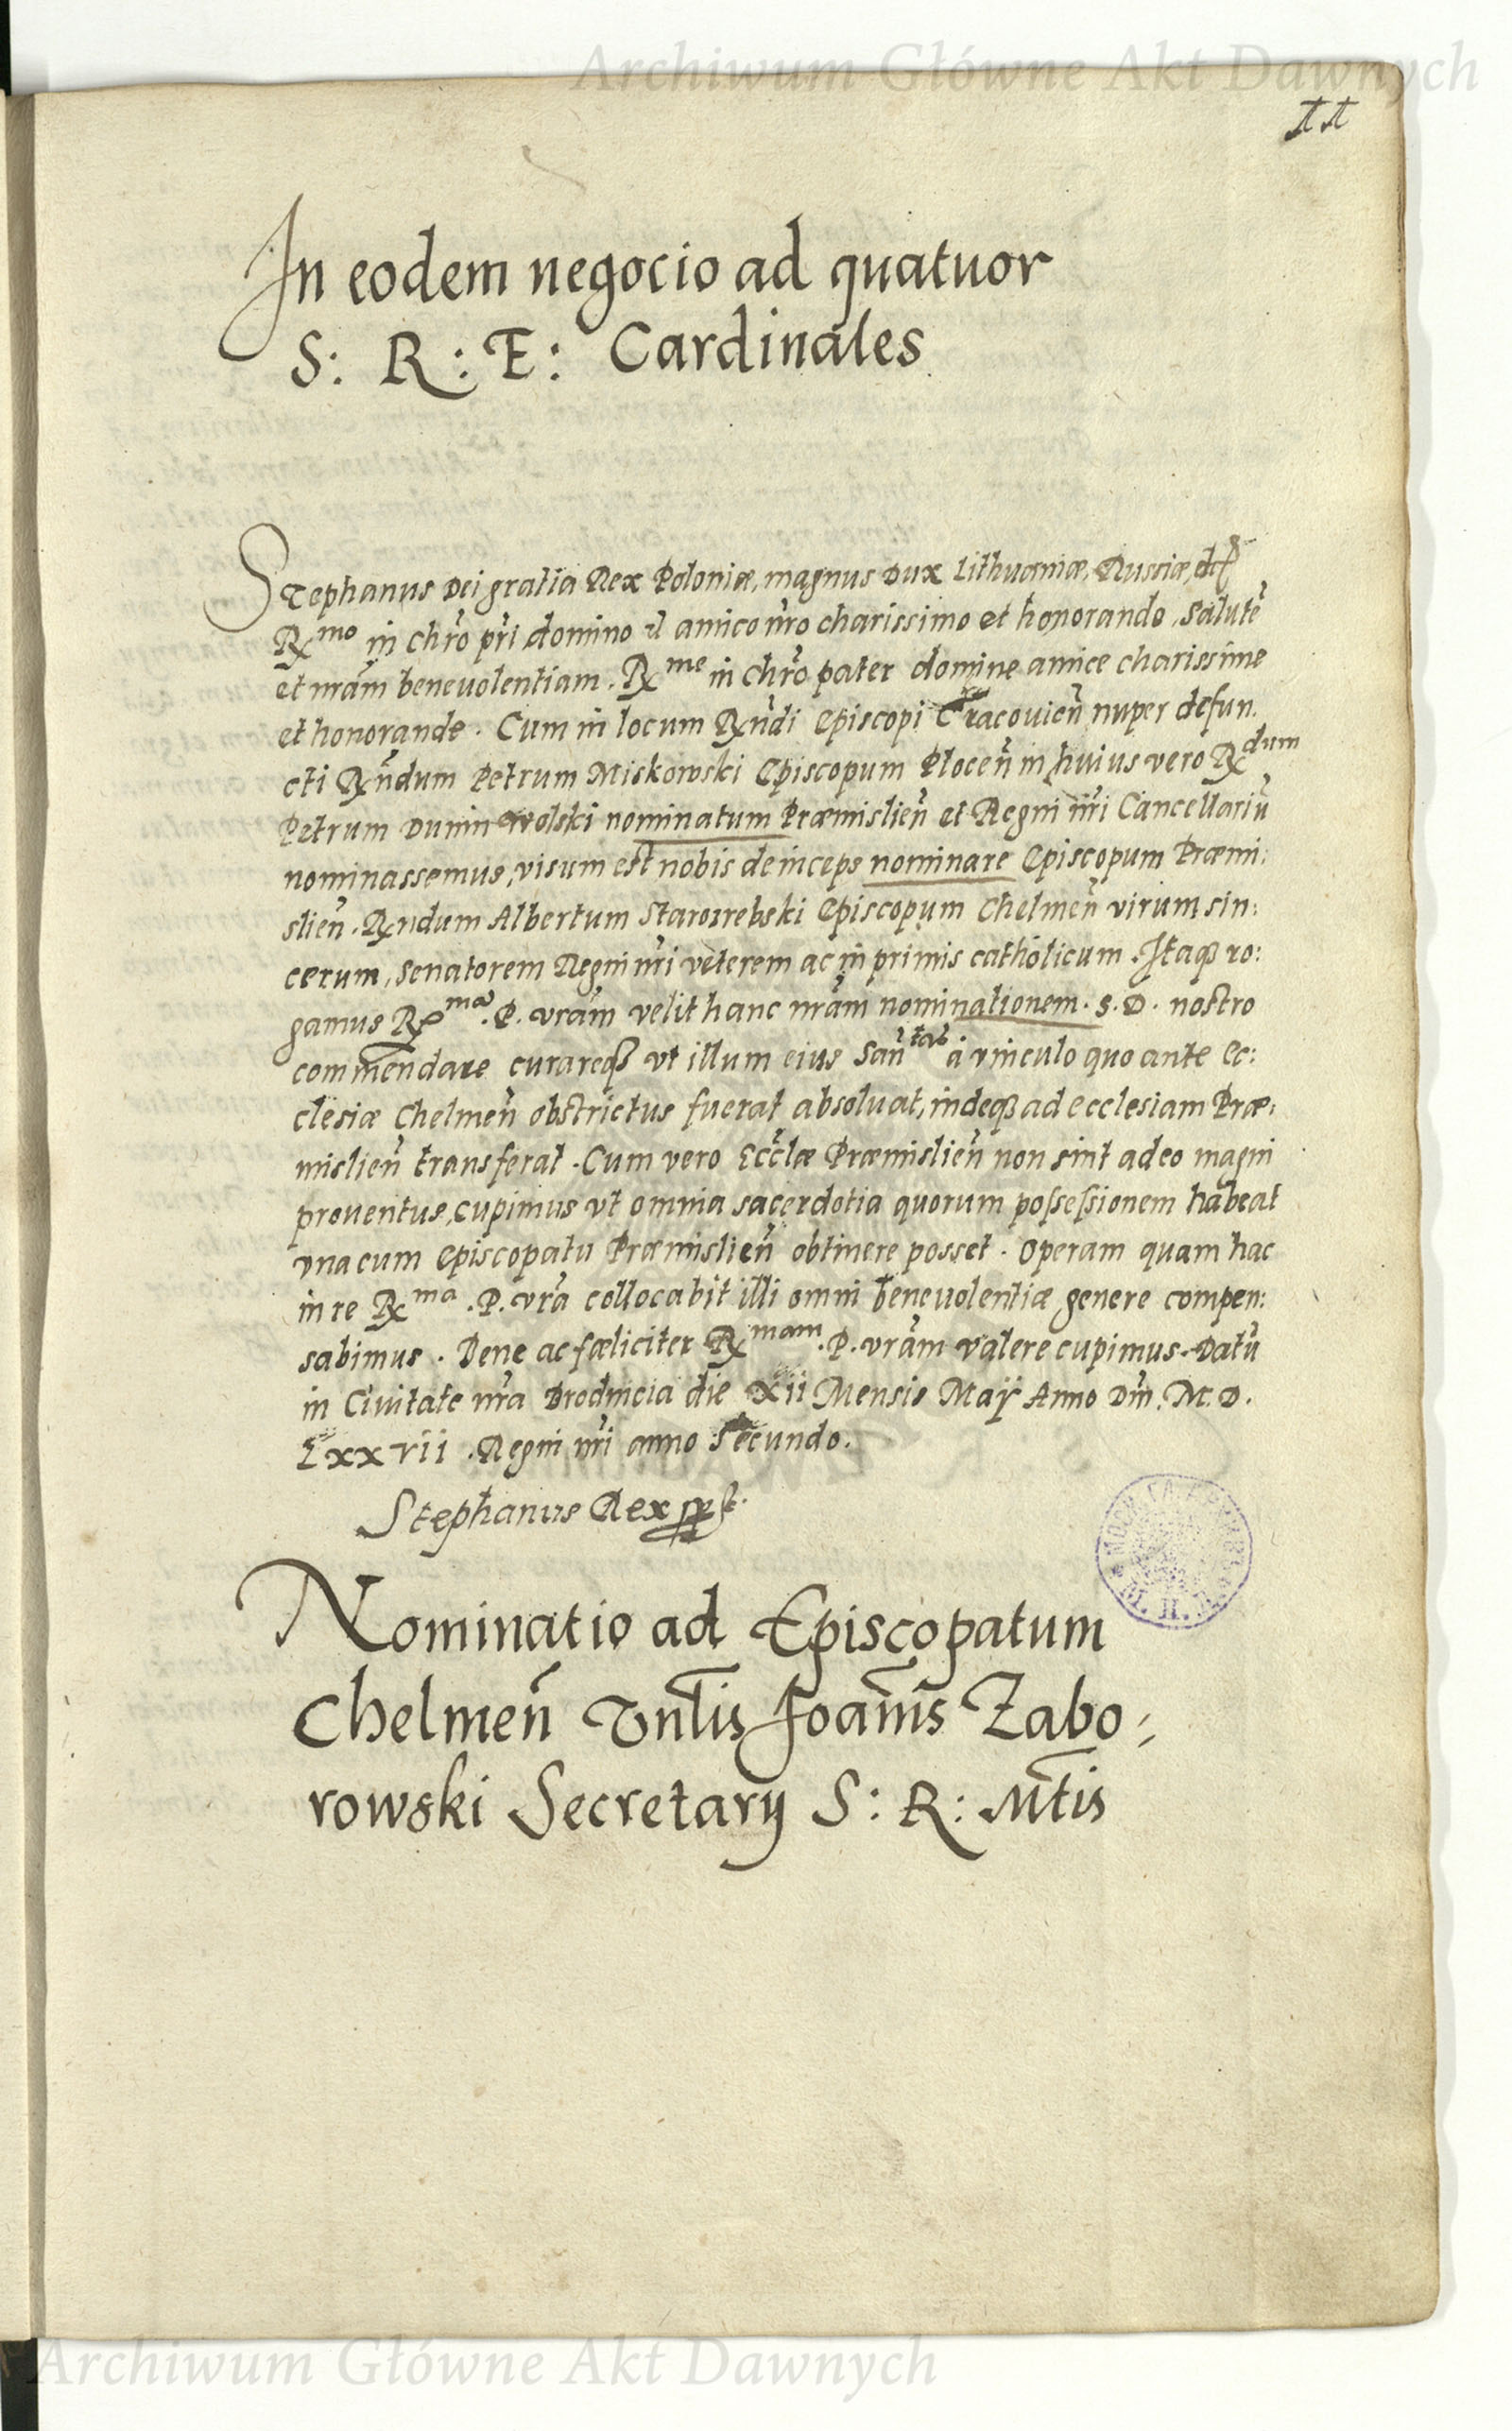 Archiwum Główne Akt Dawnych
11
In eodem negocio ad quatuor
S: R: E: Cardinales
Stephanus Dei gratia Rex Poloniæ, magnus Dux Lithuaniæ, Russiæ, etc
Rx^mo in chr̃o pr̃i domino et amico nr̃o charissimo et honorando, Salutẽ
et nrãm beneuolentiam. Rx^me in chr̃o pater domine amice charissime
et honorande. Cum in locum Rx̃ndi Episcopi Cracouieñ nuper defun.
cti Rx̃ndum Petrum Miskowski Episcopum Ploceñ in huius vero Rx^dum
Petrum Dunin Wolski nominatum Præmislieñ et Regni nr̃i Cancellariũ
nominassemus, visum est nobis deinceps nominare Episcopum Præmi:
slieñ. Rxndum Albertum Starozrebski Episcopum Chelmeñ virum sin:
cerum, Senatorem Regni nr̃i veterem ac in primis catholicum. Itaqꝫ ro:
gamus Rx^mã. P. vrãm velit hanc nrãm nominationem. S. D. nostro
commendare curareqꝫ vt illum eius Sañ^tas à vinculo quo ante Ec:
clesiæ Chelmeñ obstrictus fuerat absoluat, indeqꝫ ad ecclesiam Præ:
mislieñ transferat. Cum vero Ecc̃læ Præmislieñ non sint adeo magni
prouentus, cupimus vt omnia sacerdotia quorum possessionem habeat
vna cum Episcopatu Præmislieñ obtinere posset. Operam quam hac
in re Rx^ma. P. vrã collocabit illi omni beneuolentiæ genere compen:
sabimus. Bene ac fœliciter Rx^mam. P. vrãm valere cupimus. Datũ
in Ciuitate nrã Brodnicia die Xii Mensis Maÿ Anno Dñi. M. D.
Lxxvii. Regni nr̃i anno Secundo.
Stephanus Rex sst.
Nominatio ad Episcopatum
Chelmeñ Vnlis Joañis Zabo:
rowski Secretarij S: R: Mtis
Archiwum Główne Akt Dawnych